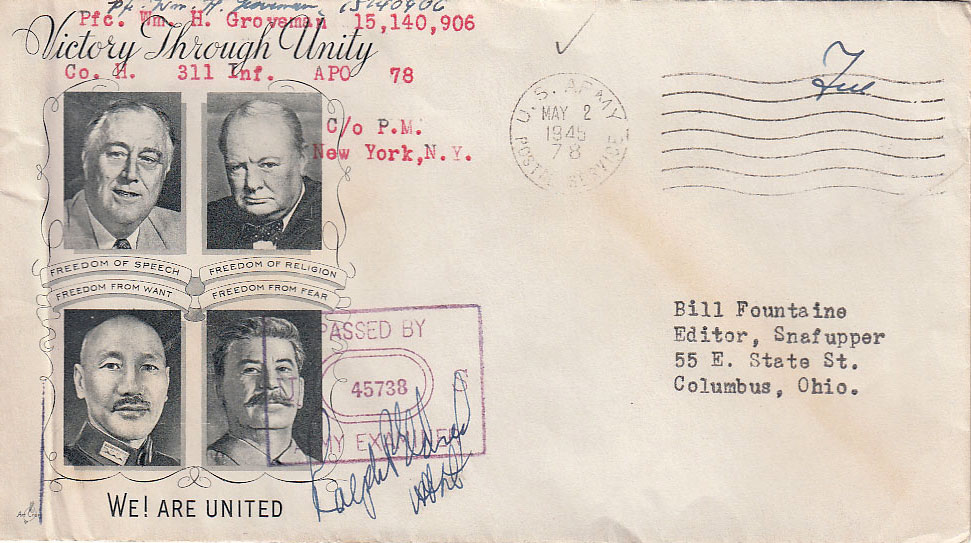 Pfc. Wm. H. Groveman 15140906
Pfc. Wm. H. Groveman 15,140,906
Victory Through Unity
Co. H. 311 Inf. APO 78
C/o P.M.
New York,N.Y.
U.S. ARMY
MAY 2
1945
78
POSTAL SERVICE
Free
FREEDOM OF SPEECH
FREEDOM OF RELIGION
FREEDOM FROM WANT
FREEDOM FROM FEAR
Bill Fountaine
Editor, Snafupper
55 E. State St.
Columbus, Ohio.
PASSED BY
45738
ARMY EXAMINER
Ralph
WE! ARE UNITED
Art Craft